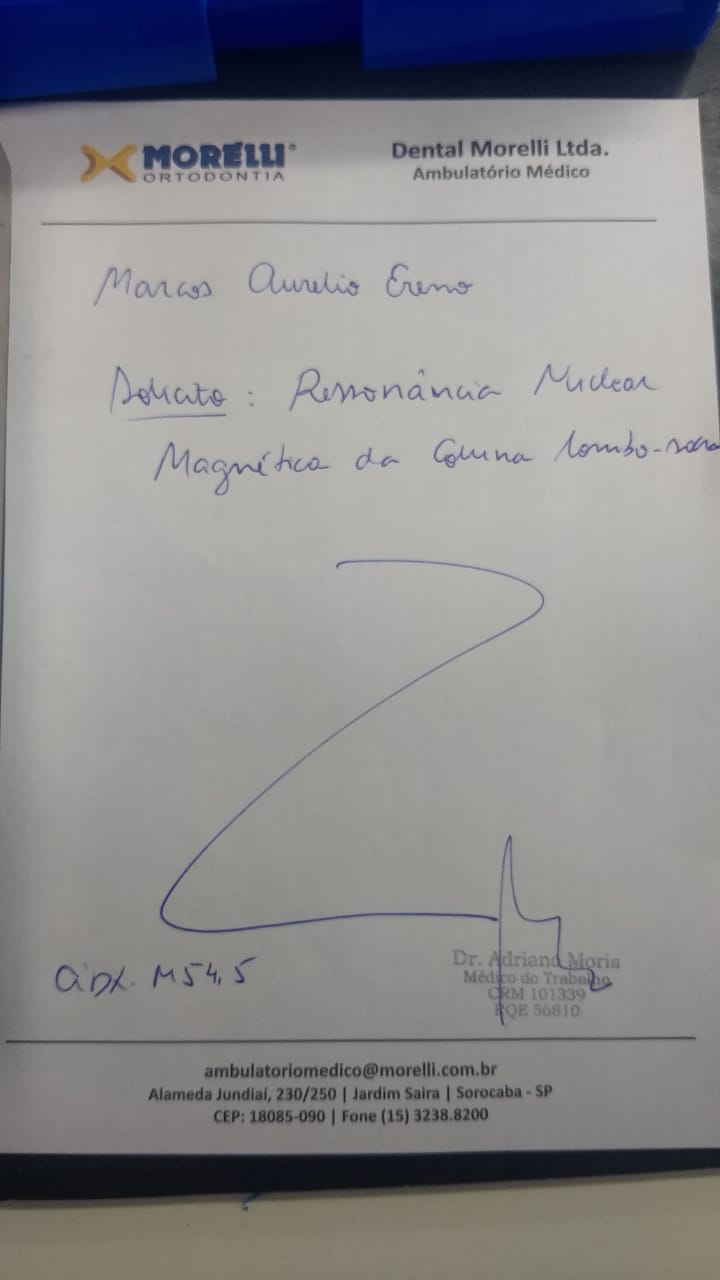 MORELLI®
ORTODONTIA
Dental Morelli Ltda.
Ambulatório Médico
Marcos Aurelio Ereno
Solicito: Ressonância Nuclear
Magnética da Coluna lombo-
CIDX. M54.5
Dr. Adriano Moris
Médico do Trabalho
CRM 101339
RQE 56810
ambulatoriomedico@morelli.com.br
Alameda Jundiaí, 230/250 | Jardim Saira | Sorocaba - SP
CEP: 18085-090 | Fone (15) 3238.8200